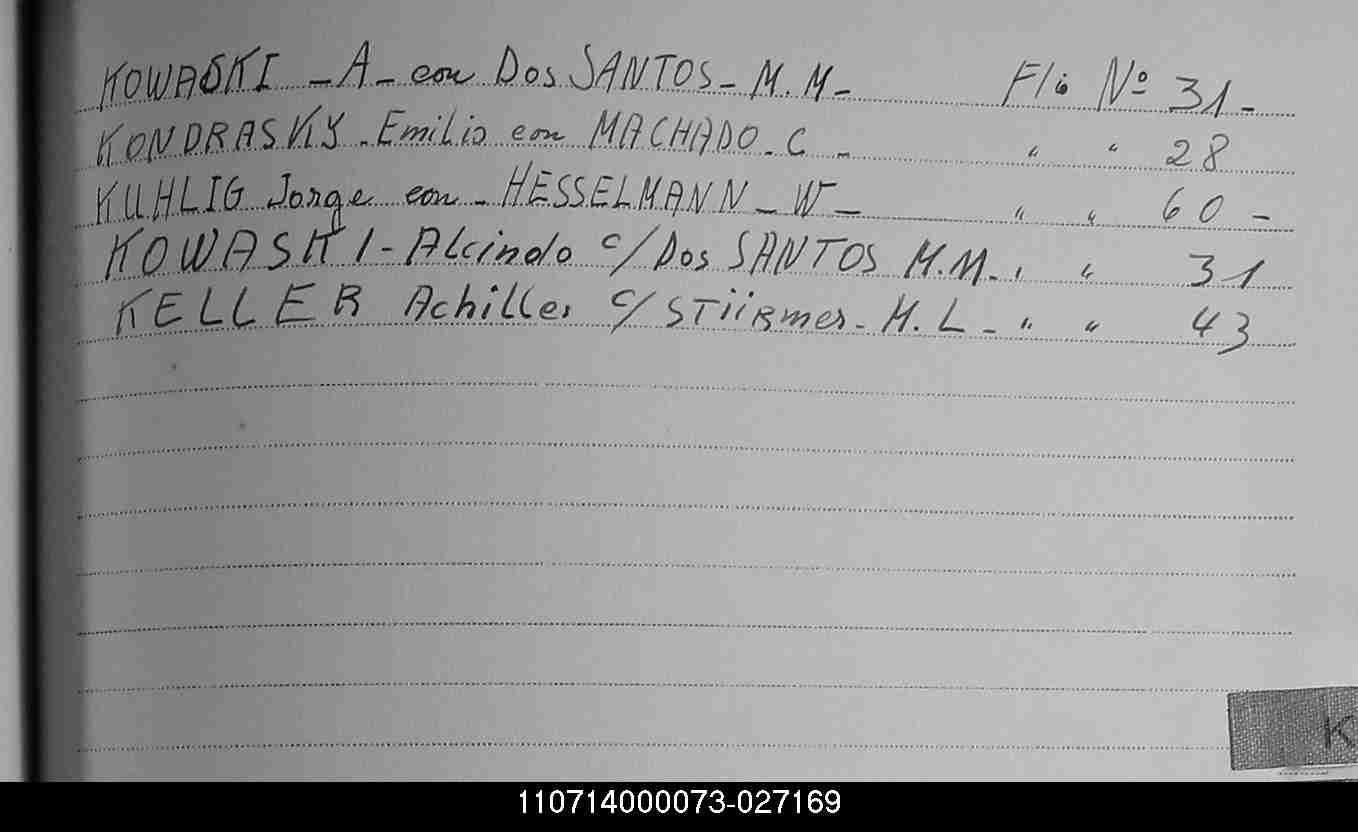 KOWASKI - A - con Dos SANTOS - M. M - Flio Nº 31 -
KONDRASKY - Emilio con MACHADO - C - " " 28
KUHLIG Jorge con - HESSELMANN - W - " " 60 -
KOWASKI - Alcindo c/ Dos SANTOS M.M. " " 31
KELLER Achilles c/ STüRmer - M. L - " " 43
K
110714000073-027169